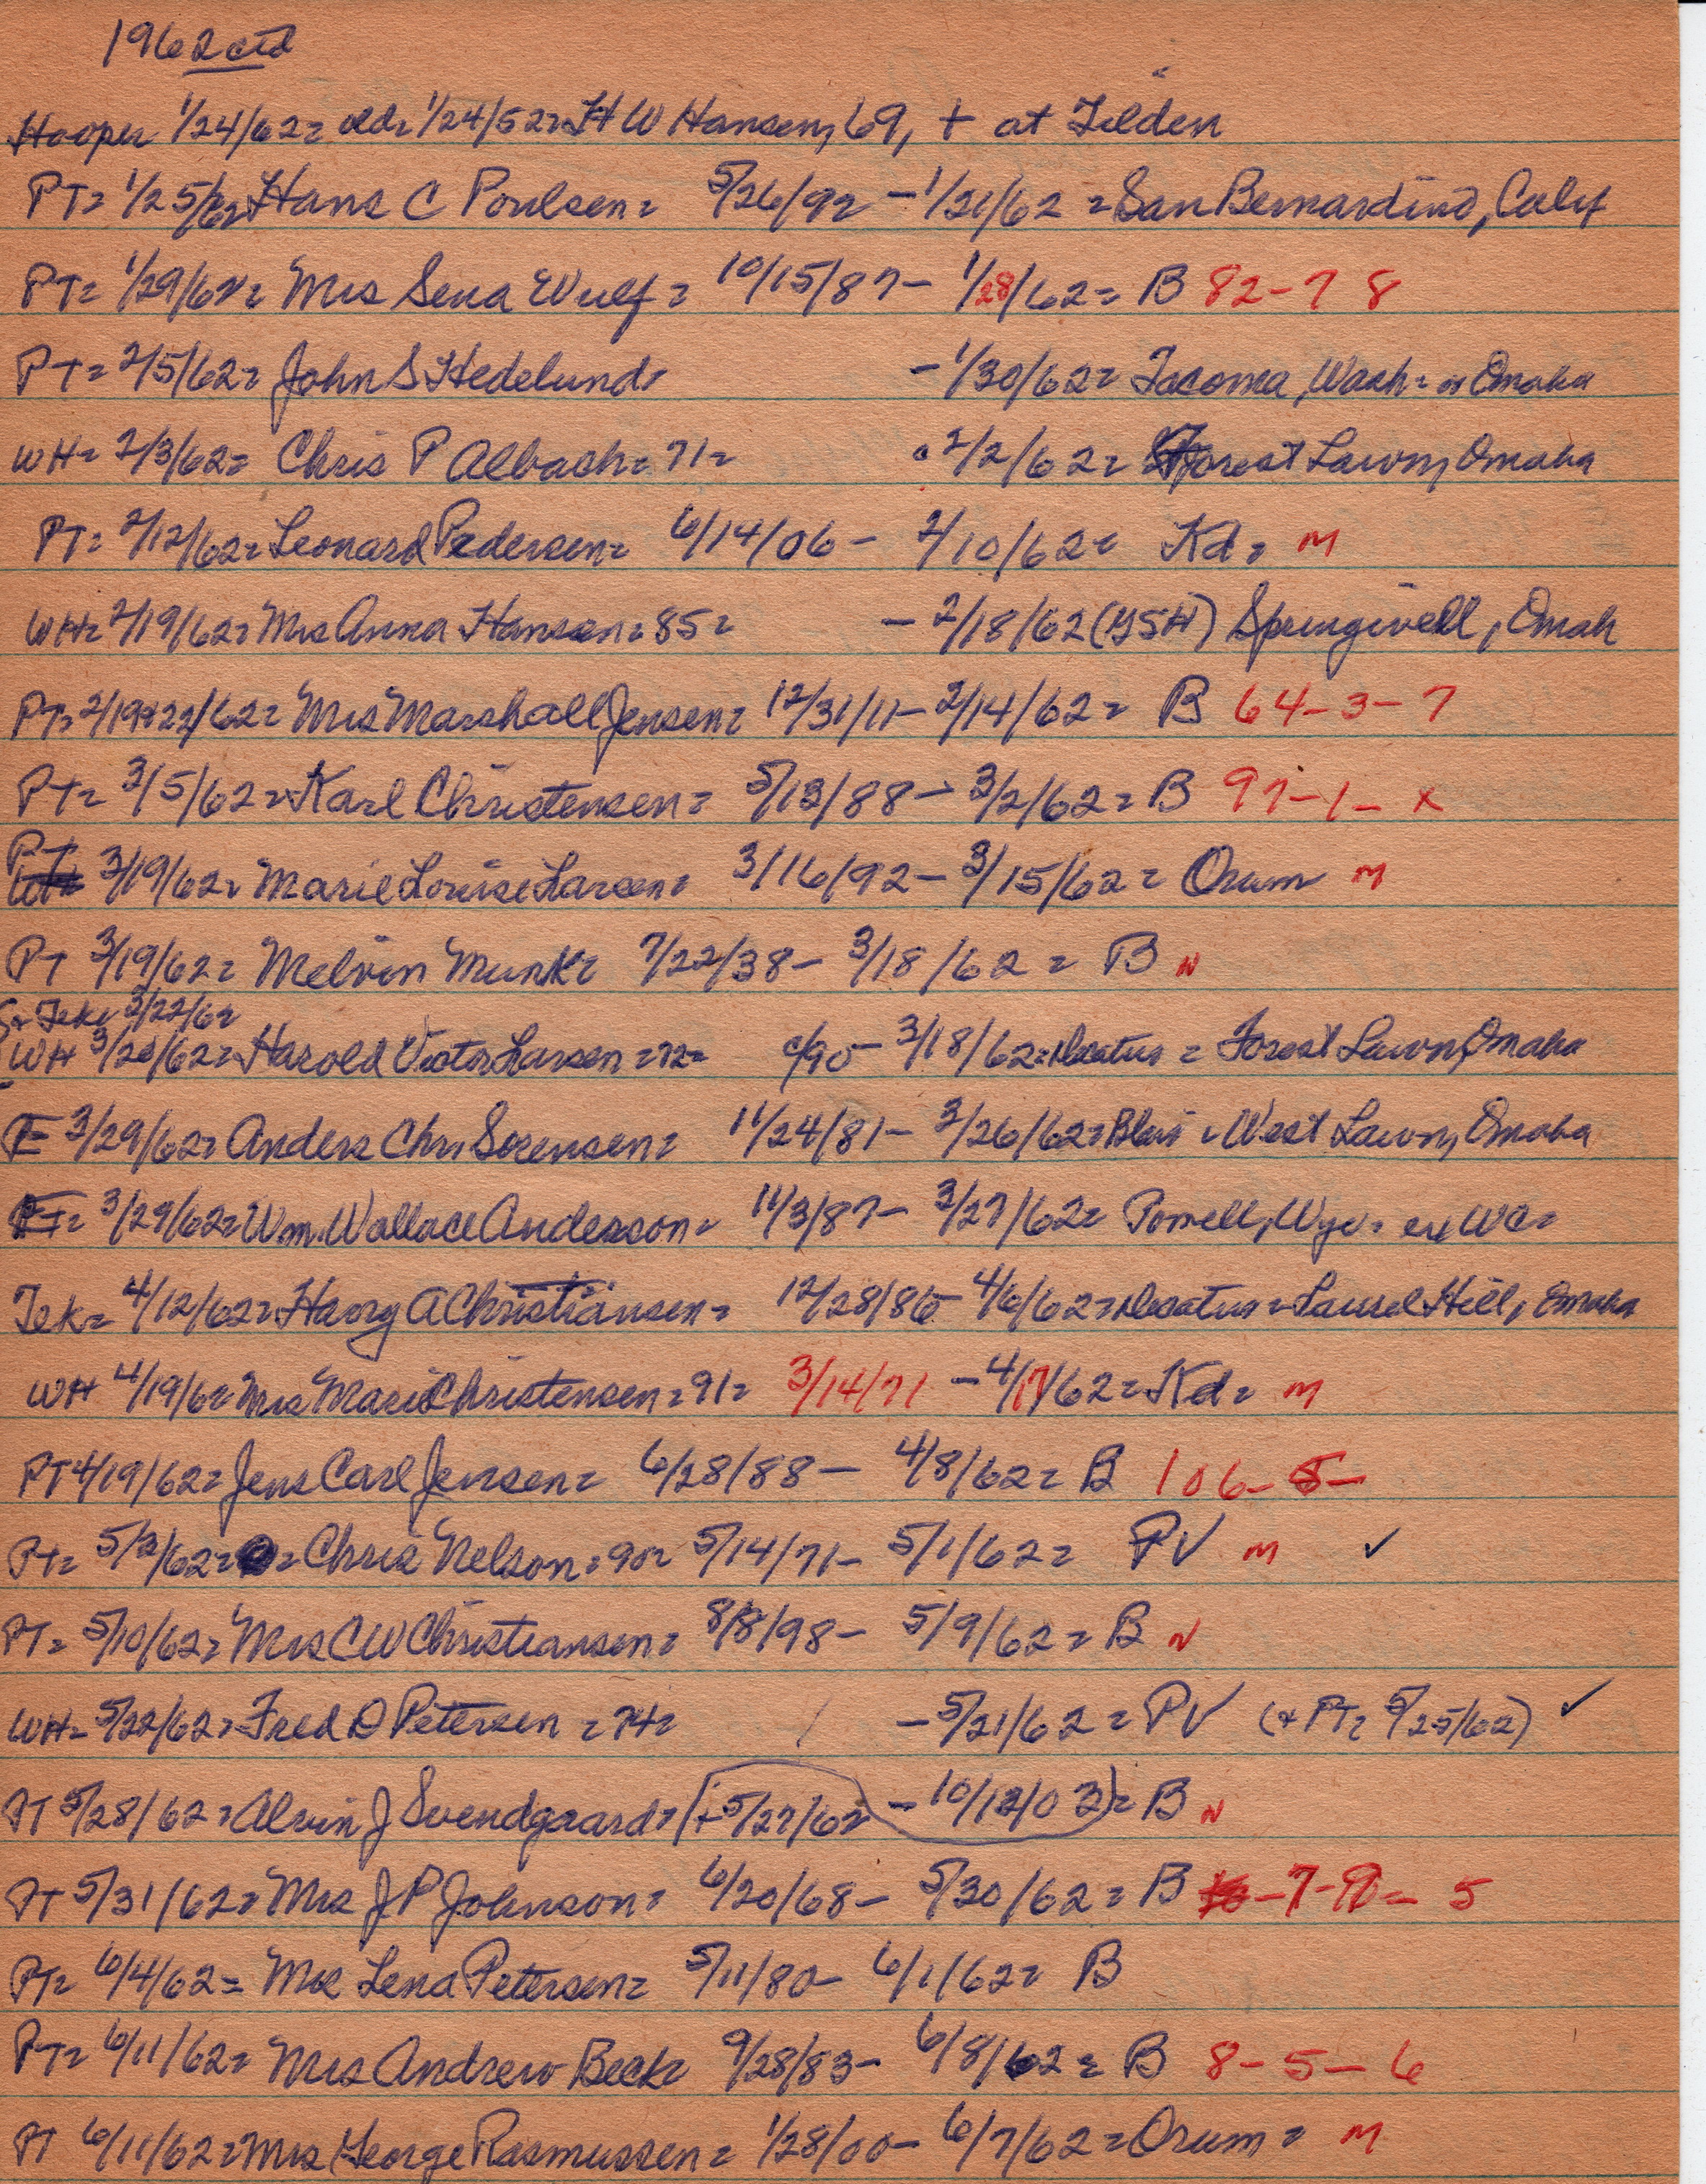 1962 ctd
Hooper 1/24/62= old= 1/24/52= H W Hansen, 69, + at Tilden
PT= 1/25/62= Hans C Poulsen= 5/26/92 - 1/21/62 = San Bernardino, Calif
PT= 1/29/62= Mrs Sena Wulf= 10/15/87- 1/28/62= B 82-7 8
PT= 2/5/62= John S Hedelund= -1/30/62= Tacoma, Wash= Omaha
WH= 2/3/62= Chris P Albach= 71= 2/2/62= Forest Lawn, Omaha
PT= 2/12/62= Leonard Pedersen= 6/14/06- 2/10/62= Kd= M
WH= 2/19/62= Mrs Anna Hansen= 85= - 2/18/62 (GSH) Springwell, Omah
PT= 2/19+22/62= Mrs Marshall Jensen= 12/31/11- 2/14/62= B 64-3-7
PT= 3/5/62= Karl Christensen= 5/13/88- 3/2/62= B 97-1- x
PT 3/19/62= Marie Louise Larsen= 3/16/92- 3/15/62= Orum M
PT 3/19/62= Melvin Munk= 7/22/38- 3/18/62= B N
Tek= 3/22/62
WH 3/20/62= Harold Victor Larsen=72= c/90- 3/18/62=Decatur= Forest Lawn, Omaha
E 3/29/62= Anders Chr. Sorensen= 11/24/81- 3/26/62=Blair= West Lawn, Omaha
PT= 3/29/62= Wm. Wallace Anderson= 11/3/87- 3/27/62= Powell, Wyo= ex WC=
Tek= 4/12/62= Harry A Christiansen= 12/28/86- 4/6/62=Decatur= Laurel Hill, Omaha
WH 4/19/62= Mrs Marie Christensen= 91= 3/14/71 - 4/17/62= Kd= M
PT 4/19/62= Jens Carl Jensen= 6/28/88- 4/8/62= B 106-5-
PT= 5/3/62= Chris Nelson=90= 5/14/71- 5/1/62= PV M ✓
PT= 5/10/62= Mrs C W Christiansen= 8/8/98- 5/9/62= B N
WH= 5/22/62= Fred D Petersen =74= / -5/21/62= PV (+PT= 5/25/62) ✓
PT 5/28/62= Alvin J Svendgaard= (+5/27/62 - 10/12/03)= B N
PT 5/31/62= Mrs J P Johnson= 6/20/68- 5/30/62= B -7- - 5
PT= 6/4/62= Mrs Lena Petersen= 5/11/80- 6/1/62= B
PT= 6/11/62= Mrs Andrew Beck= 9/28/83- 6/8/62= B 8-5-6
PT 6/11/62= Mrs George Rasmussen= 1/28/00- 6/7/62= Orum= M